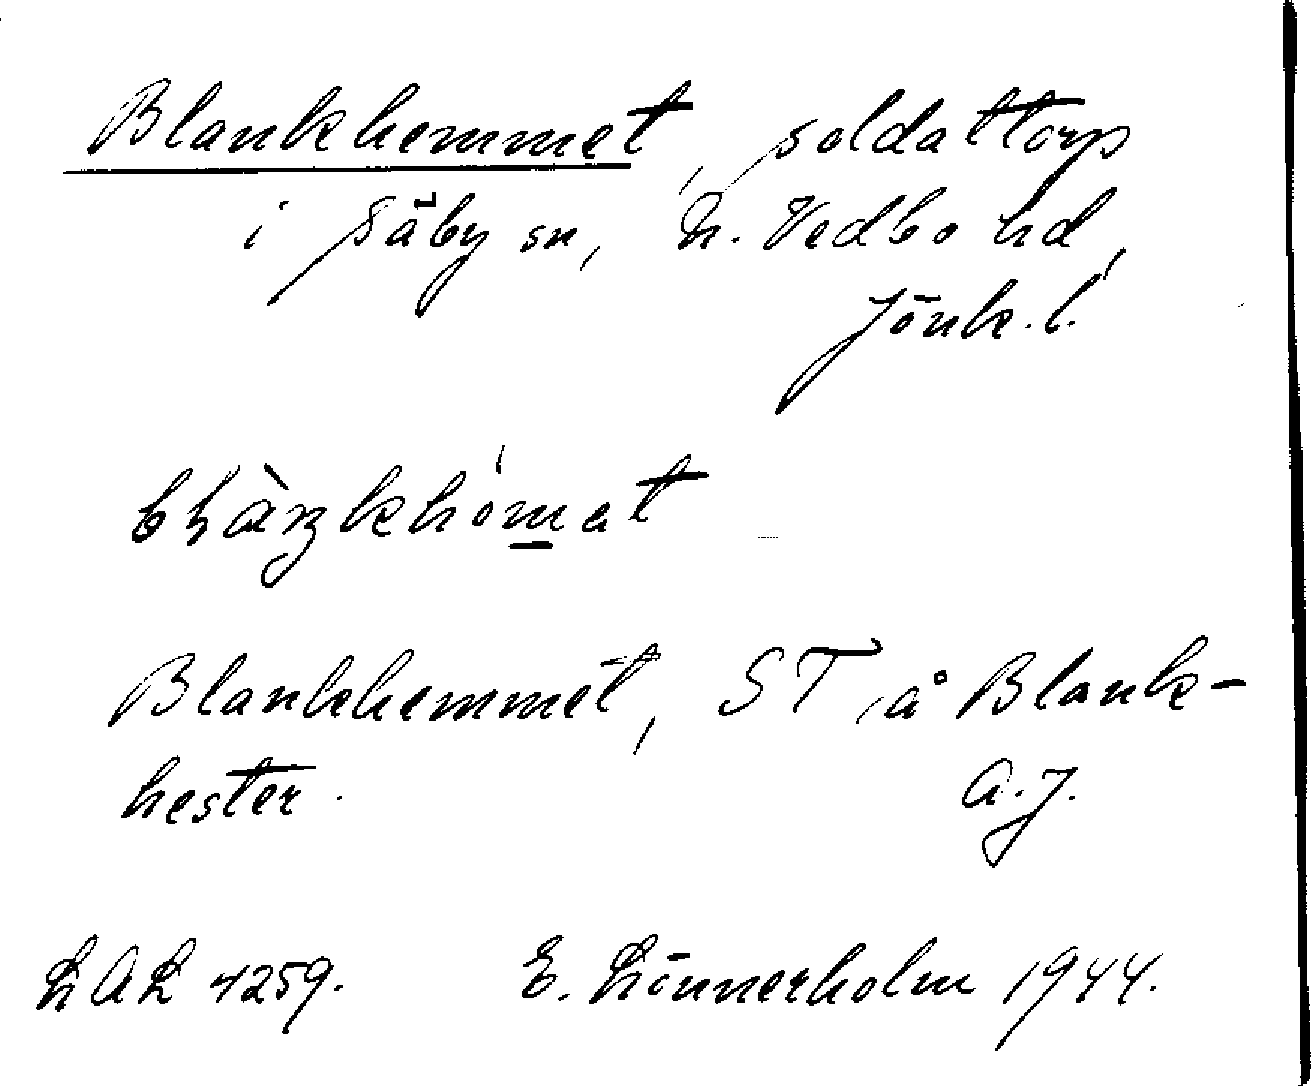 Blankhemmet, soldattorp
i Säby sn, N. Vedbo hd,
Jönk. l.
Blankhemmet, ST å Blank-
hester. A.J.
LAL 4259. E. Lönnerholm 1944.